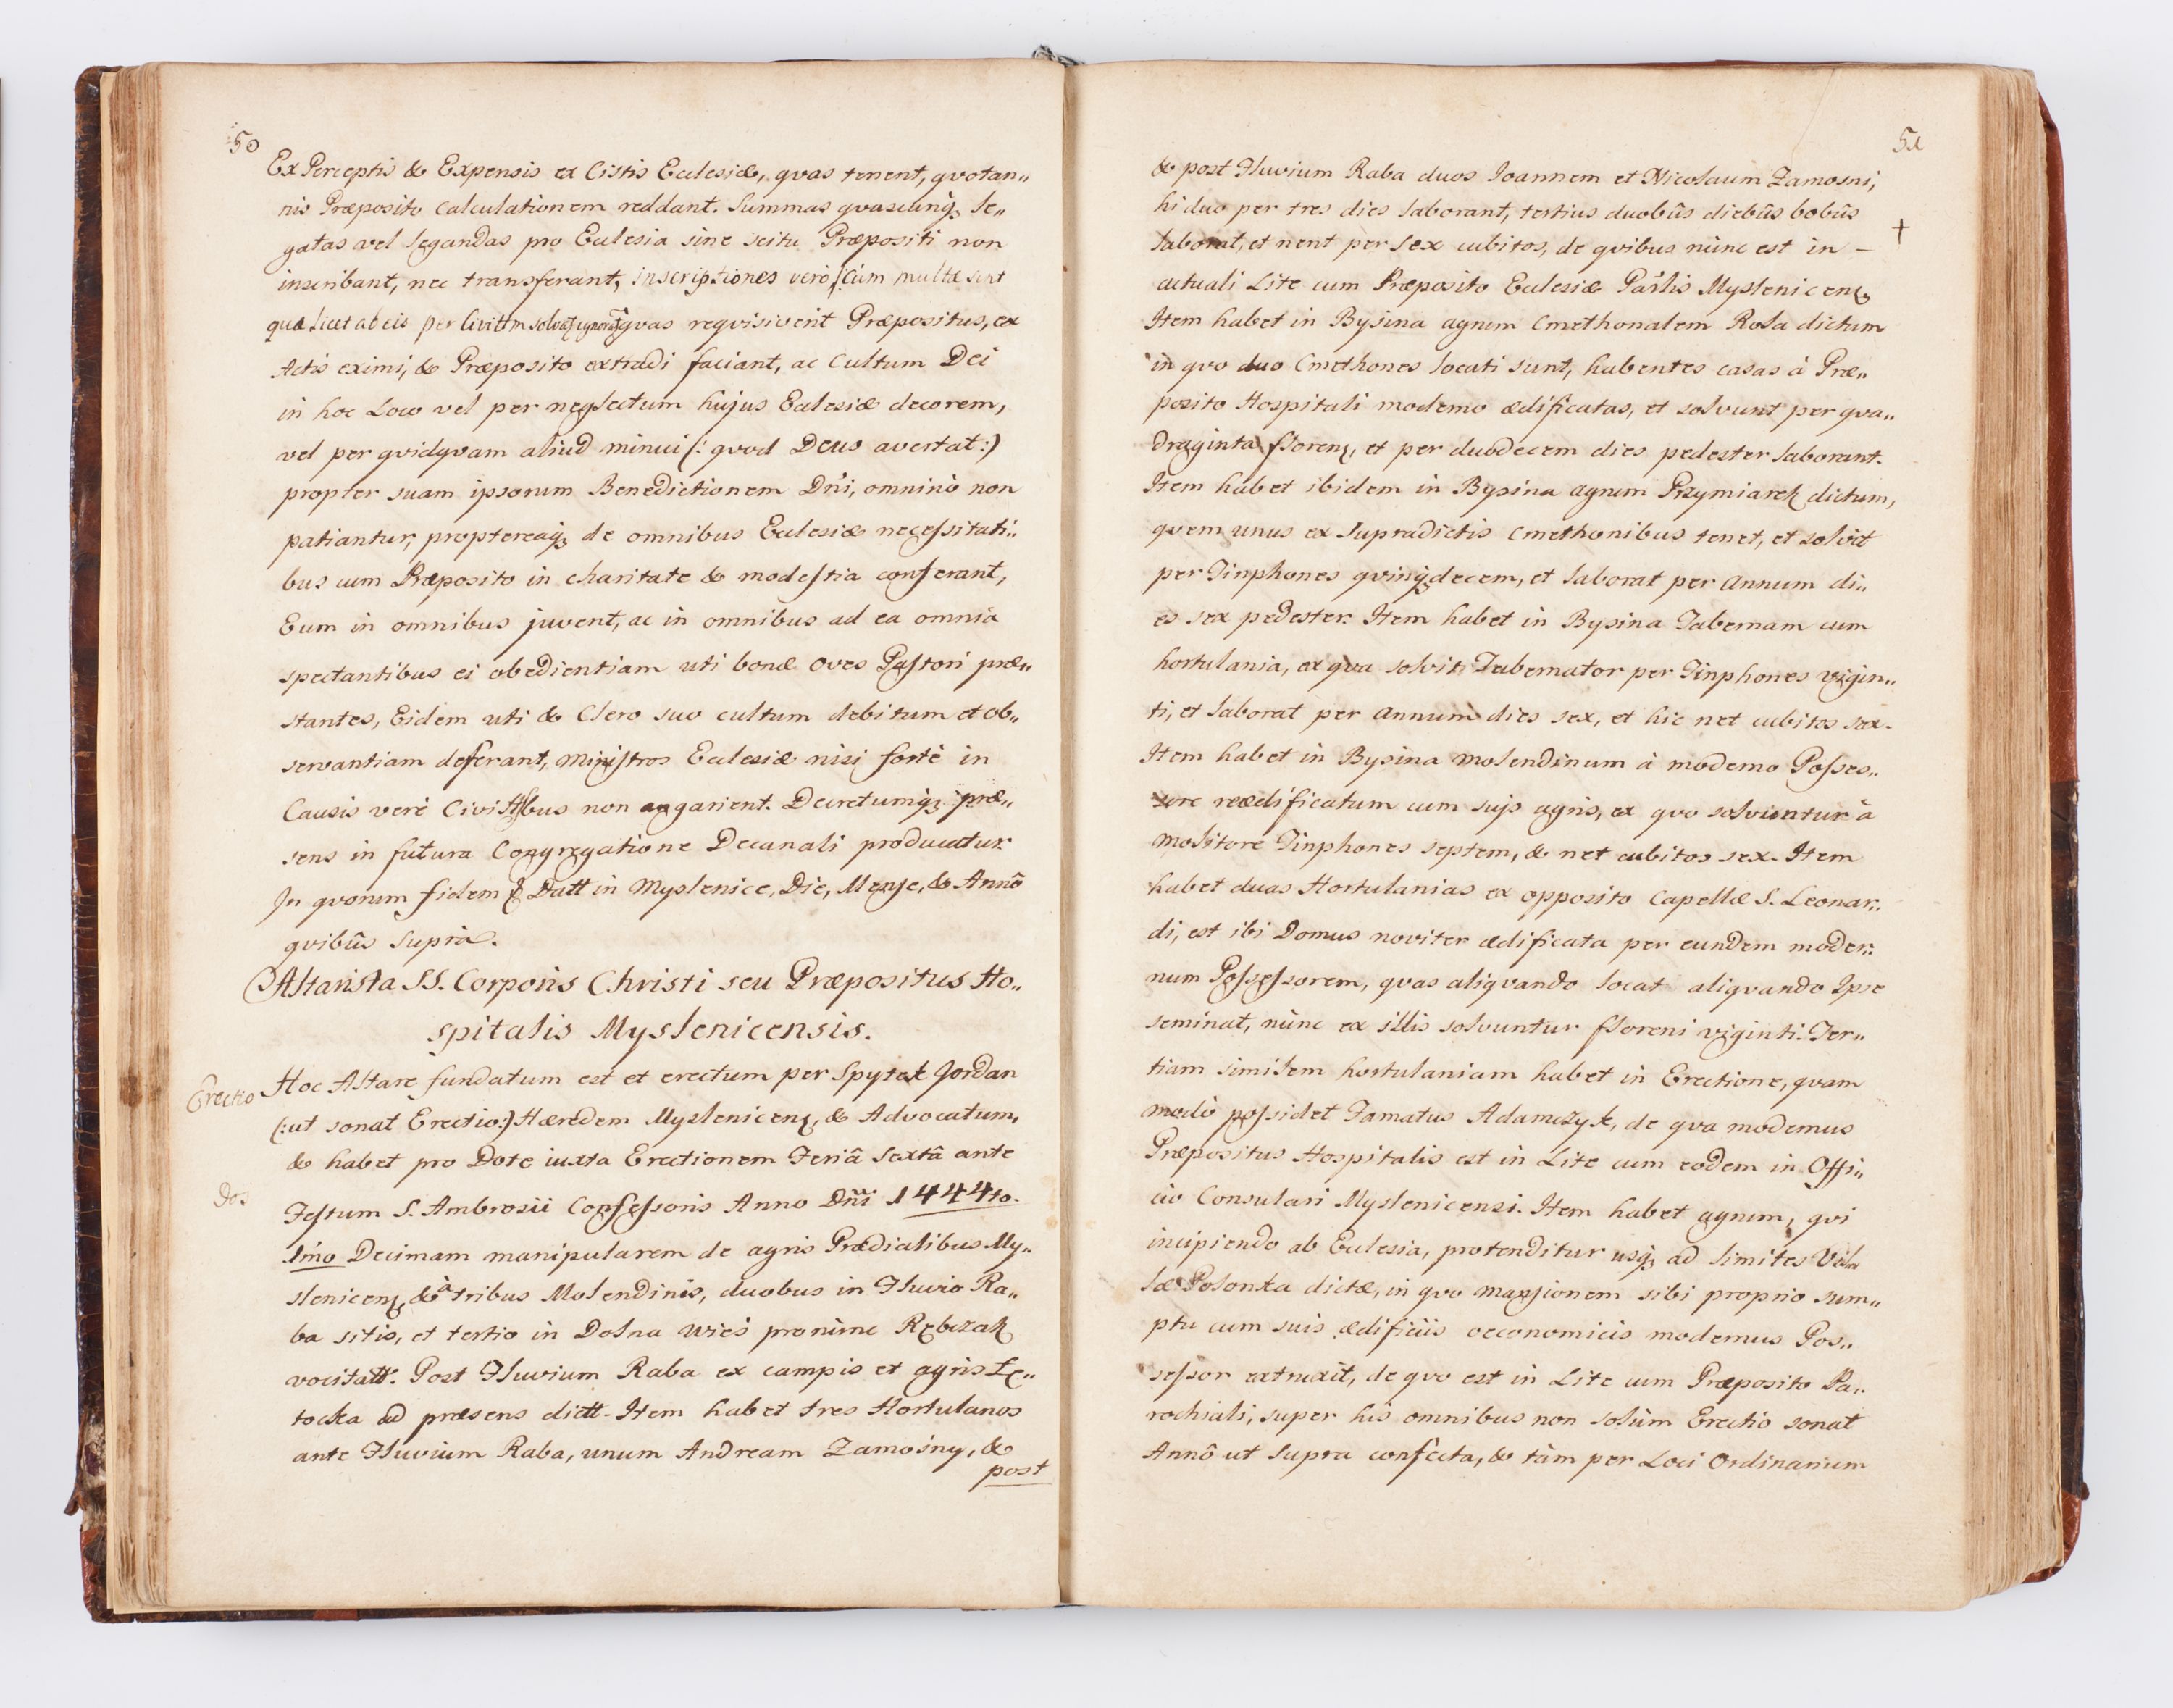 50
Ex Perceptis & Expensis ex Cistis Ecclesiæ, qvas tenent, qvotan,,
nis Præposito calculationem reddant. Summas qvascunq; le,,
gatas vel legandas pro Ecclesia sine scitu Præpositi non
inscribant, nec transferant, inscriptiones verò /: cùm multæ sint
quæ licet ab eis per Civittm qvas reqvisiverit Præpositus, ex
Actis eximi, & Præposito extradi faciant, ac Cultum Dei
in hoc Loco vel per neglectum hujus Ecclesiæ decorem,
vel per qvidqvam aliud minui (: qvod Deus avertat:)
propter suam ipsorum Benedictionem Dñi, omninò non
patiantur, proptereaq; de omnibus Ecclesiæ necessitati,,
bus cum Præposito in charitate & modestia conferant,
Eum in omnibus juvent, ac in omnibus ad ea omnia
spectantibus ei obedientiam uti bonæ oves Pastori præ,,
stantes, Eidem uti & Clero suo cultum debitum et ob,,
servantiam deferant, Ministros Ecclesiæ nisi fortè in
Causis verè Civilibus non angarient. Decretumq; præ,,
sens in futura Congregatione Decanali producatur.
In qvorum fidem & Datt in Myslenice, Die, Mense, & Annô
qvibûs suprà.
Altarista SS. Corporis Christi seu Præpositus Ho,,
spitalis Myslenicensis.
Erectio Hoc Altare fundatum est et erectum per Spytek Jordan
(:ut sonat Erectio:) Hæredem Myslenicen, & Advocatum,
& habet pro Dote iuxta Erectionem Feriâ Sextâ ante
Dos
Festum S. Ambrosii Confessoris Anno Dñi 1444to.
1mo Decimam manipularem de agris Prædialibus My,,
slenicen, & à tribus Molendinis, duobus in Fluvio Ra,,
ba sitis, et tertio in Dolna wieś pronunc Rębczak
vocitatt. Post Fluvium Raba ex campis et agris Łę,,
tocka ad præsens dictt. Item habet tres Hortulanos
ante Fluvium Raba, unum Andream Zamośny, &
post
51
& post Fluvium Raba duos Ioannem et Nicolaum Zamosni,
hi duo per tres dies laborant, tertius duobûs diebûs bobûs
laborat, et nent per sex cubitos, de qvibus nunc est in - †
actuali Lite cum Præposito Ecclesiæ Parlis Myslenicen,
Item habet in Bysina agrum Cmethonalem Rola dictum
in qvo duo Cmethones locati sunt, habentes casas à Præ,,
posito Hospitali moderno ædificatas, et solvunt per qva,,
draginta floren, et per duodecem dies pedester laborant.
Item habet ibidem in Bysina agrum Przymiarek dictum,
qvem unus ex supradictis Cmethonibus tenet, et solvit
per Tinphones qvinqdecem, et laborat per Annum di,,
es sex pedester. Item habet in Bysina Tabernam cum
hortulania, ex qva solvit Tabernator per Tinphones vigin,,
ti, et laborat per Annum dies sex, et hic net cubitos sex.
Item habet in Bysina Molendinum à moderno Posses,,
sore reædificatum cum suis agris, ex qvo solvuntur à
Molitore Tinphones septem, & net cubitos sex. Item
habet duas Hortulanias ex opposito Capellæ S. Leonar,,
di, est ibi Domus noviter ædificata per eundem moder,,
num Possessorem, qvas aliqvando locat aliqvando Ipse
seminat, nunc ex illis solvuntur floreni viginti. Ter,,
tiam similem hortulaniam habet in Erectione, qvam
modò possidet Famatus Adamczyk, de qva modernus
Præpositus Hospitalis est in Lite cum eodem in Offi,,
cio Consulari Myslenicensi. Item habet agrum, qvi
incipiendo ab Ecclesia, protenditur usq; ad limites Vil
læ Polonka dictæ, in qvo mansionem sibi proprio sum,,
ptu cum suis ædificiis oeconomicis modernus Pos,,
sessor extruxit, de qvo est in Lite cum Præposito Pa,,
rochiali, super his omnibus non solùm Erectio sonat
Annô ut supra confecta, & tàm per Loci Ordinarium